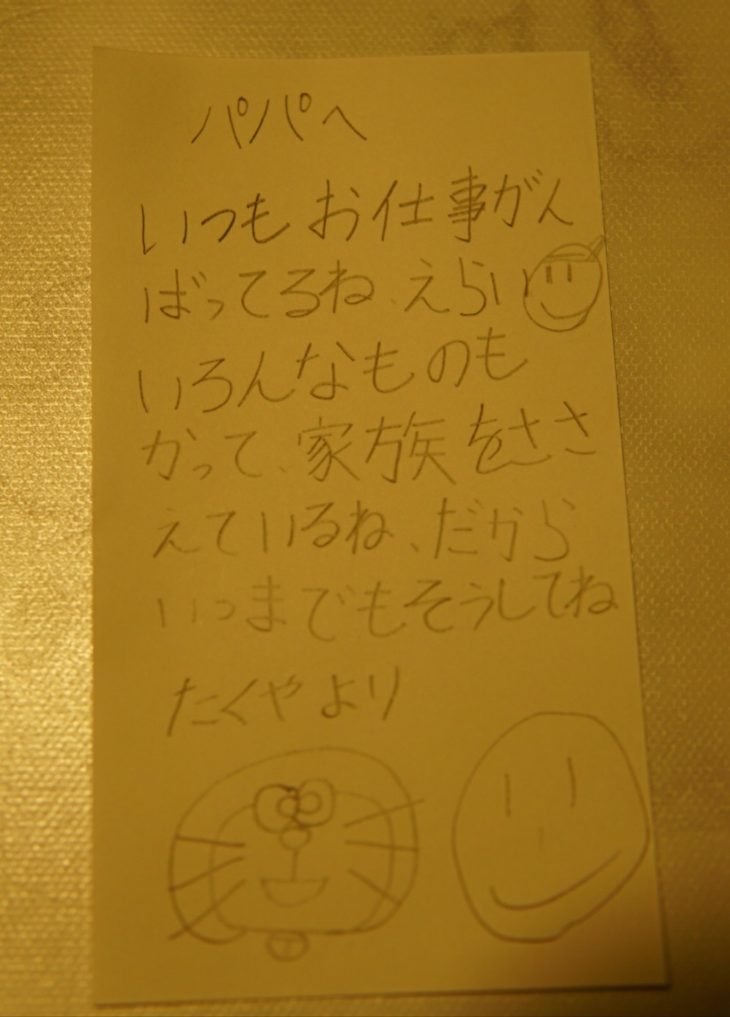 パパへ
いつもお仕事がん
ばってるね、えらい
いろんなものも
かって、家族をささ
えているね、だから
いつまでもそうしてね
たくやより